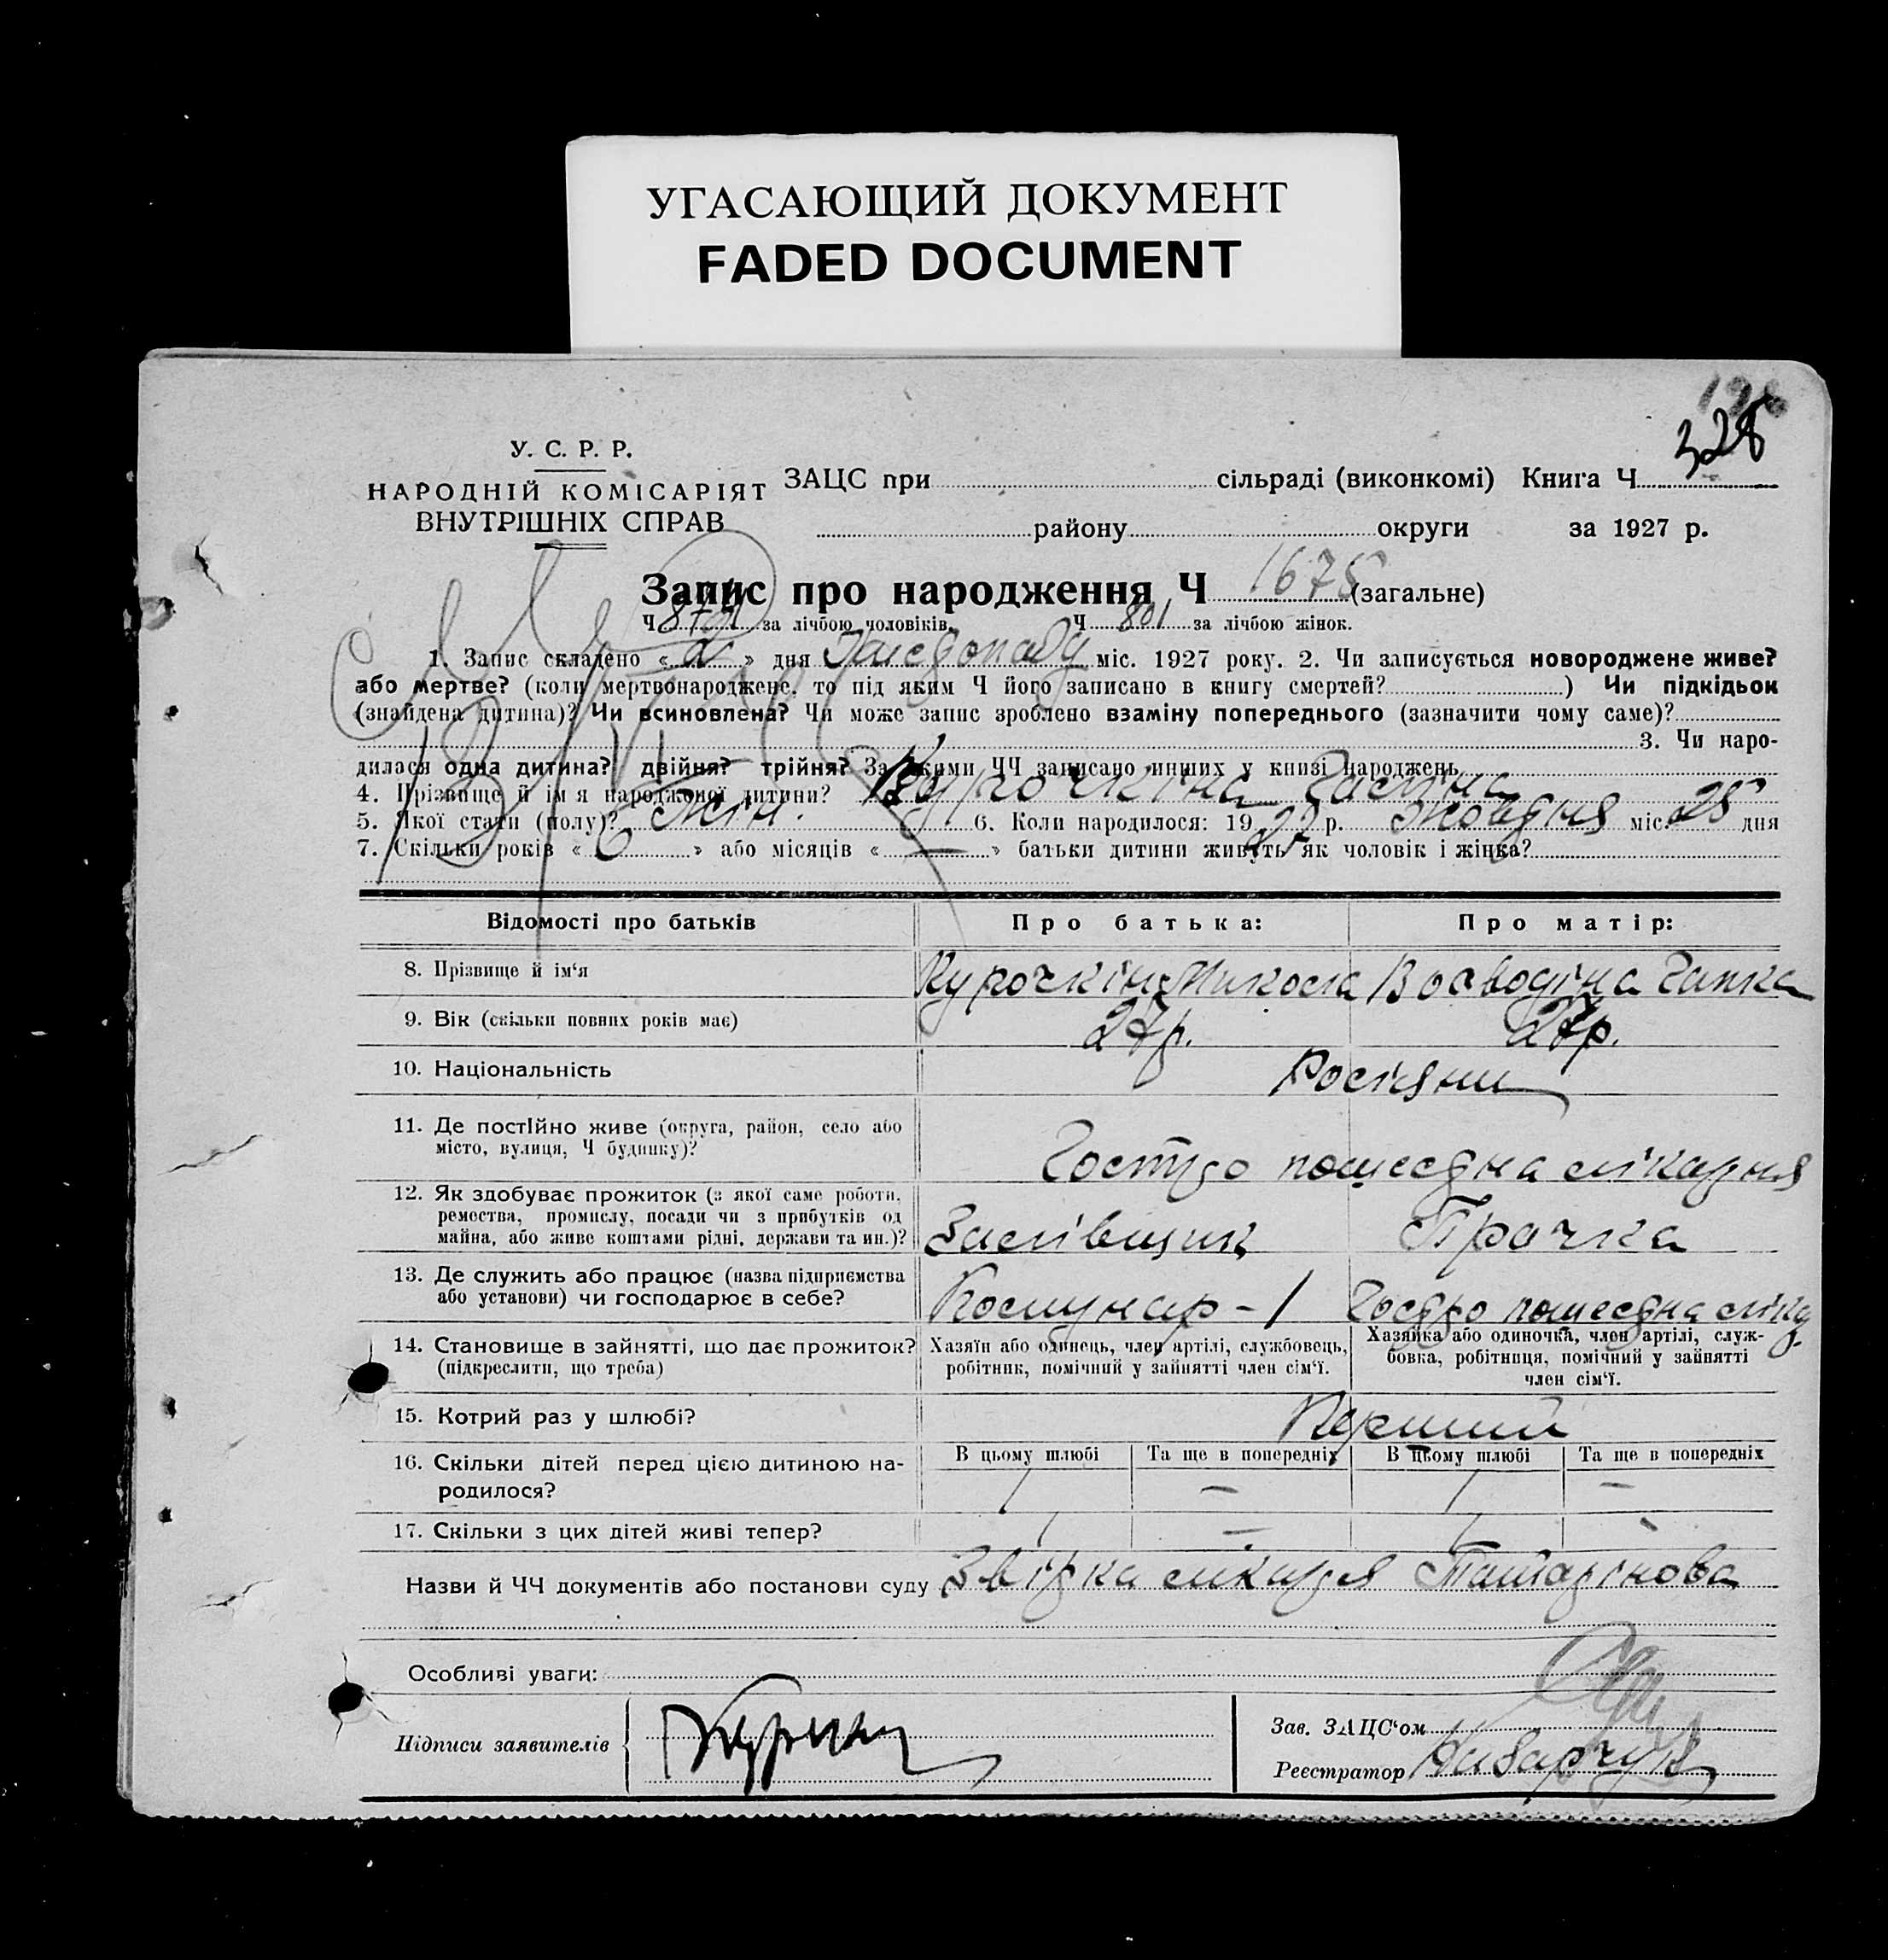 УГАСАЮЩИЙ ДОКУМЕНТ
FADED DOCUMENT
328
У. С. Р. Р.
НАРОДНІЙ КОМІСАРІЯТ
ВНУТРІШНІХ СПРАВ
ЗАЦС при сільраді (виконкомі) Книга Ч
району округи за 1927 р.
Запис про народження Ч 1675 (загальне)
Ч 874 за лічбою чоловіків. Ч 801 за лічбою жінок.
1. Запис складено «2» дня Листопаду міс. 1927 року. 2. Чи записується новороджене живе?
або мертве? (коли мертвонароджене, то під яким Ч його записано в книгу смертей? ) Чи підкідьок
(знайдена дитина)? Чи всиновлена? Чи може запис зроблено взаміну попереднього (зазначити чому саме)?
3. Чи наро-
дилася одна дитина? двійня? трійня? За якими ЧЧ записано инших у книзі народжень
4. Прізвище й ім'я народженої дитини? Курочкіна Галіна
5. Якої стати (полу)? Жін. 6. Коли народилося: 1927 р. Жовтня міс. 25 дня
7. Скільки років «6» або місяців «—» батьки дитини живуть як чоловік і жінка?
Відомості про батьків Про батька: Про матір:
8. Прізвище й ім'я Курочкін Микола Воєводіна Ганка
9. Вік (скільки повних років має) 27р. 27р.
10. Національність Росіяни
11. Де постійно живе (округа, район, село або
місто, вулиця, Ч будинку)? Гостро пошесдна лікарня
12. Як здобуває прожиток (з якої саме роботи,
ремества, промислу, посади чи з прибутків од
майна, або живе коштами рідні, держави та ин.)? Залівщик Прачка
13. Де служить або працює (назва підприємства
або установи) чи господарює в себе? Комунар - 1 Гостро пошесдна лікар.
14. Становище в зайнятті, що дає прожиток?
(підкреслити, що треба)
Хазяїн або одинець, член артілі, службовець,
робітник, помічний у зайнятті член сім'ї.
Хазяйка або одиночка, член артілі, служ-
бовка, робітниця, помічний у зайнятті
член сім'ї.
15. Котрий раз у шлюбі? Перший
16. Скільки дітей перед цією дитиною на-
родилося?
В цьому шлюбі Та ще в попередніх В цьому шлюбі Та ще в попередніх
1 — 1 —
17. Скільки з цих дітей живі тепер? 1 — 1 -
Назви й ЧЧ документів або постанови суду Звірка лікаря Татарінова
Особливі уваги:
Підписи заявителів
Зав. ЗАЦС'ом
Реєстратор